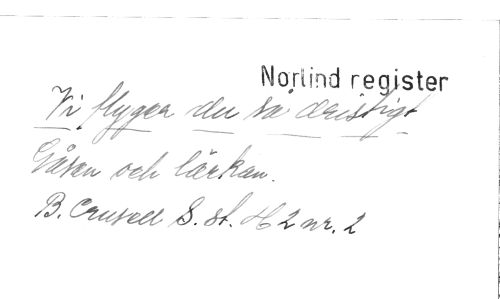 Norlind register
Vi flyger du så dristigt
Gåsen och lärkan.
B. Crusell S. st. H 2 nr. 2